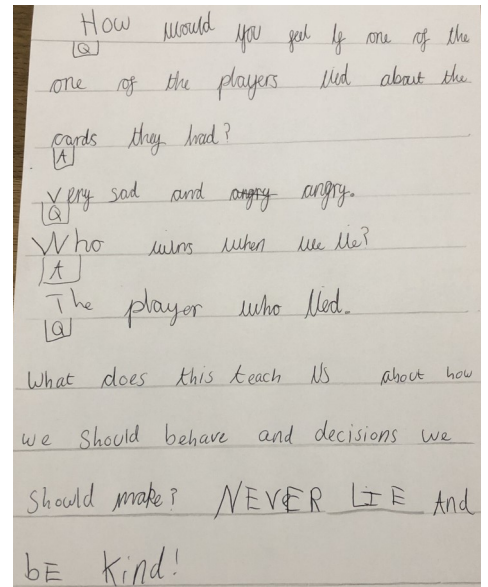 How would you feel if one of the
[Q]
one of the players lied about the
cards they had?
[A]
Very sad and angry angry.
[Q]
Who wins when we lie?
[A]
The player who lied.
[Q]
What does this teach us about how
we should behave and decisions we
should make? NEVER LIE And
bE Kind!